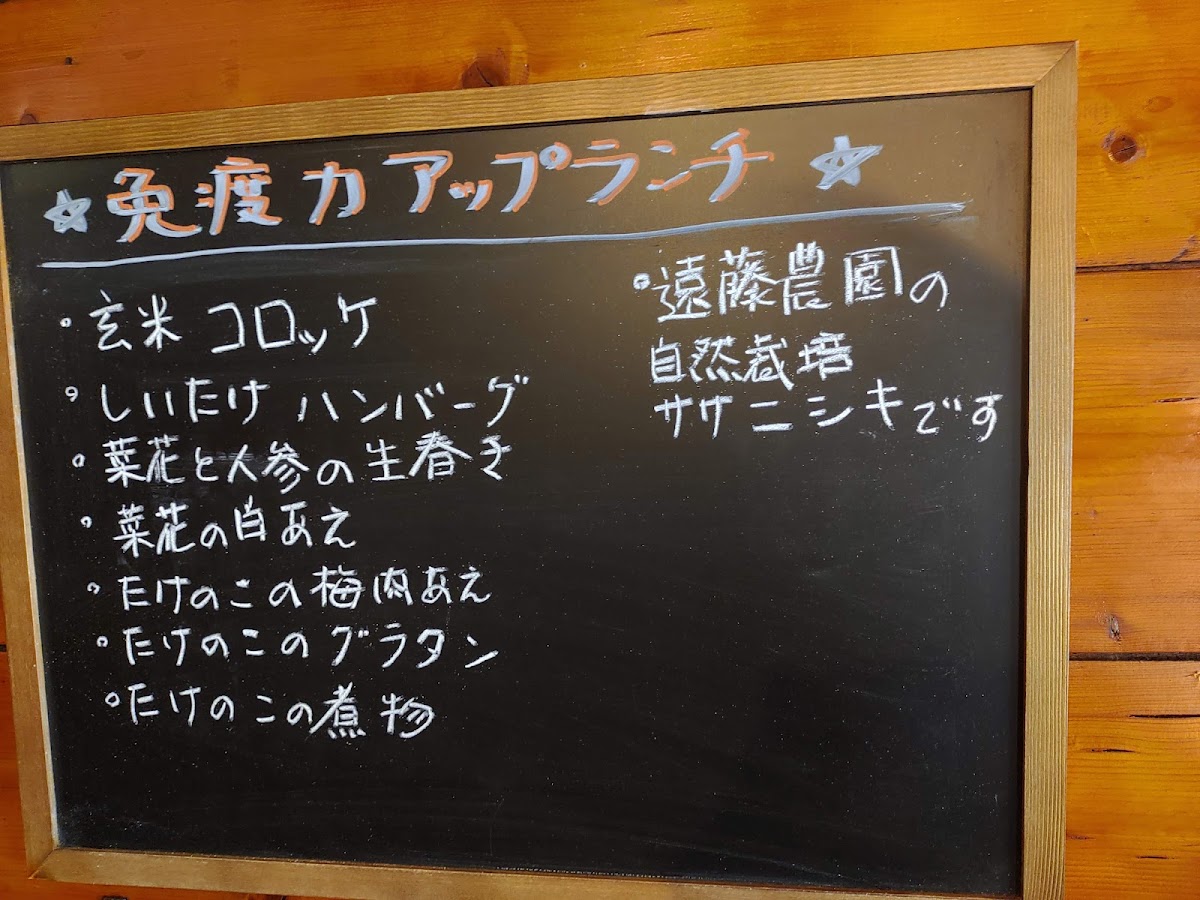 ☆免疫力アップランチ☆
・玄米コロッケ
・しいたけハンバーグ
・菜花と人参の生春き
・菜花の白あえ
・たけのこの梅肉あえ
・たけのこのグラタン
・たけのこの煮物
・遠藤農園の
自然栽培
ササニシキです